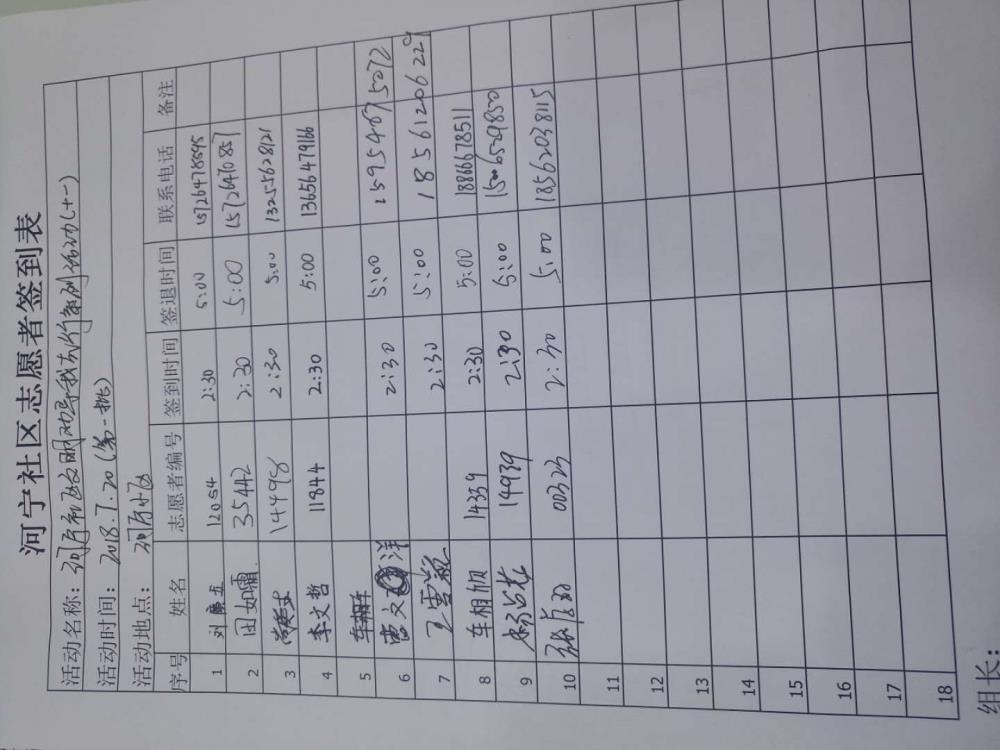 河宁社区志愿者签到表
活动名称：河宁社区文明劝导我先行系列活动(十一)
活动时间：2018.7.20(第一批)
活动地点：河宁小区
序号 姓名 志愿者编号 签到时间 签退时间 联系电话 备注
1 刘廉五 12054 2:30 5:00
2 田如霜 35442 2:30 5:00
3 14498 2:30 5:00 13255628121
4 李文哲 11844 2:30 5:00 13656479166
5
6 曹文洋 2:30 5:00 15954675072
7 王雪薇 2:30 5:00 18561206229
8 车相旭 14339 2:30 5:00 18866678511
9 14939 2:30 5:00 15006529850
10 00323 2:30 5:00 18562038115
11
12
13
14
15
16
17
18
组长：